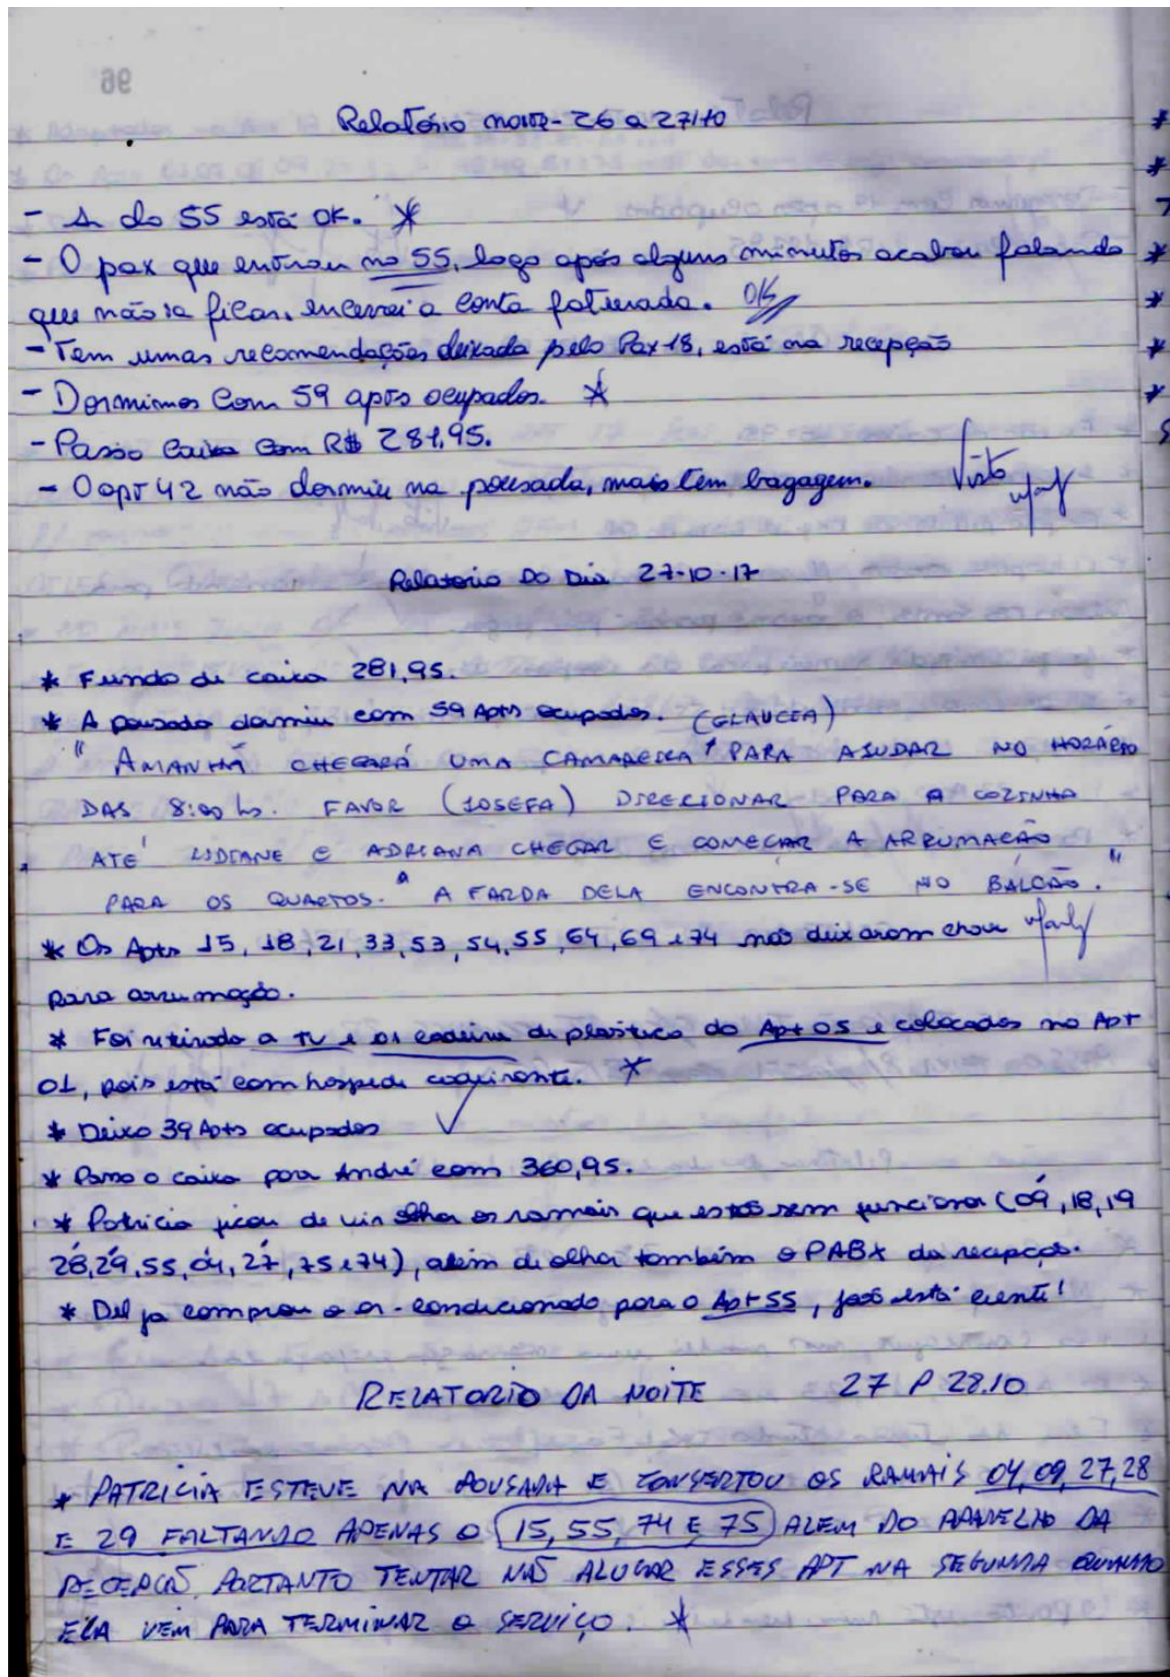 96
Relatório noite - 26 a 27/10
- A do 55 está OK. *
- O pax que entrou no 55, logo após alguns minutos acabou falando
que não ia ficar, encerrei a conta faturada. OK
- Tem umas recomendações deixada pelo Pax 18, está na recepção
- Dormimos Com 59 aptos ocupados. *
- Passo Caixa Com R$ 281,95.
- O apt 42 não dormiu na pousada, mais tem bagagem. Visto
Relatorio Do Dia 27-10-17
* Fundo de caixa 281,95.
* A pousada dormiu com 59 Apts ocupados. (GLAUCEA)
" AMANHÃ CHEGARÁ UMA CAMAREIRA PARA AJUDAR NO HORÁRIO
DAS 8:00 hs. FAVOR (JOSEFA) DIRECIONAR PARA A COZINHA
ATÉ LIDIANE E ADRIANA CHEGAR E COMEÇAR A ARRUMACÃO
PARA OS QUARTOS. A FARDA DELA ENCONTRA-SE NO BALCÃO. "
* Os Apts 15, 18, 21, 33, 53, 54, 55, 64, 69 e 74 não deixaram chave
para arrumação.
* Foi retirado a TV e as cadeira de plastico do Apt 05 e colocados no Apt
01, pois está com hospede .
* Deixo 39 Apts ocupados
* Passo o caixa para André com 360,95.
* Patricia ficou de vir olha os ramais que estão sem funciona (09, 18, 19
28, 29, 55, 04, 27, 75 e 74), além de olha também o PABX da recepção.
* Del ja comprou o ar-condicionado para o Apt 55, João está ciente!
RELATORIO DA NOITE 27 P 28.10
* PATRICIA ESTEVE NA POUSADA E CONSERTOU OS RAMAIS 04, 09, 27, 28
E 29 FALTANDO APENAS O (15, 55, 74 E 75) ALEM DO APARELHO DA
RECEPCÃO, PORTANTO TENTAR NÃO ALUGAR ESSES APT NA SEGUNDA QUANDO
ELA VEM PARA TERMINAR O SERVIÇO. *